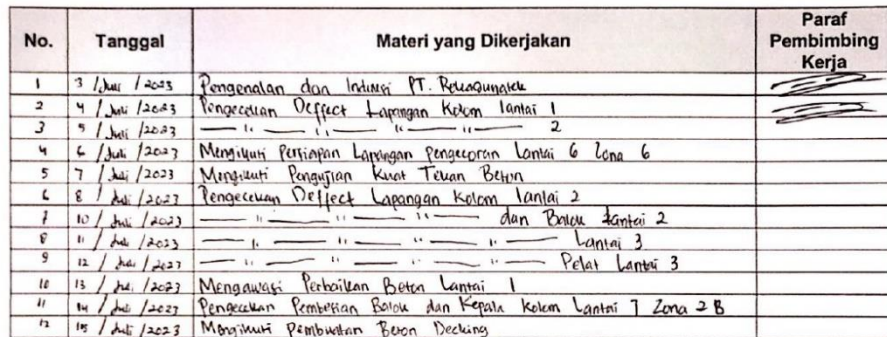 No. Tanggal Materi yang Dikerjakan Paraf Pembimbing Kerja
1 3 / Juli / 2023 Pengenalan dan Induksi PT.
2 4 / Juli / 2023 Pengecekan Deffect Lapangan Kolom lantai 1
3 5 / Juli / 2023 — " — " — " — " — 2
4 6 / Juli / 2023 Mengikuti Persiapan Lapangan pengecoran Lantai 6 Zona 6
5 7 / Juli / 2023 Mengikuti Pengujian Kuat Tekan Beton
6 8 / Juli / 2023 Pengecekan Deffect Lapangan Kolom lantai 2
7 10 / Juli / 2023 — " — " — " — dan Balok Lantai 2
8 11 / Juli / 2023 — " — " — " — " — Lantai 3
9 12 / Juli / 2023 — " — " — " — " — Pelat Lantai 3
10 13 / Juli / 2023 Mengawasi Perbaikan Beton Lantai 1
11 14 / Juli / 2023 Pengecekan Pembesian Balok dan Kepala kolom Lantai 7 Zona 2 B
12 15 / Juli / 2023 Mengikuti Pembuatan Beton Decking